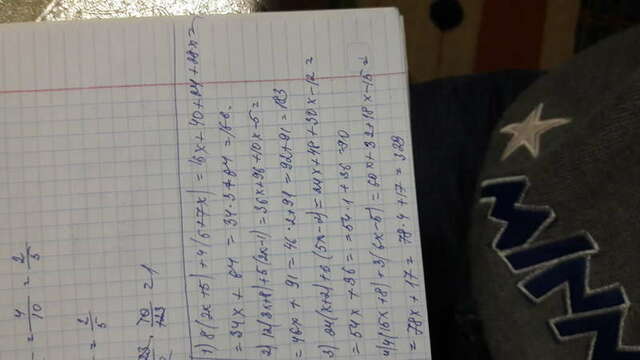 = 4/10 = 2/5
= 2/5
· 10/123 = 1
1) 8(2x+5)+4(6+7x) = 16x+40+24+28x=
= 34x + 64 = 34·3+64 = 166.
2) 12(3x+8)+5(2x-1)=36x+96+10x-5=
= 46x + 91 = 46·2+91 = 92+91 = 183
3) 24(x+2)+6(5x-2)=24x+48+30x-12=
= 54x +36 = =54·1+36=90
4) 4(15x+8)+3(6x-5) = 60x+32+18x-15=
= 78x+17 = 78·4+17 = 329